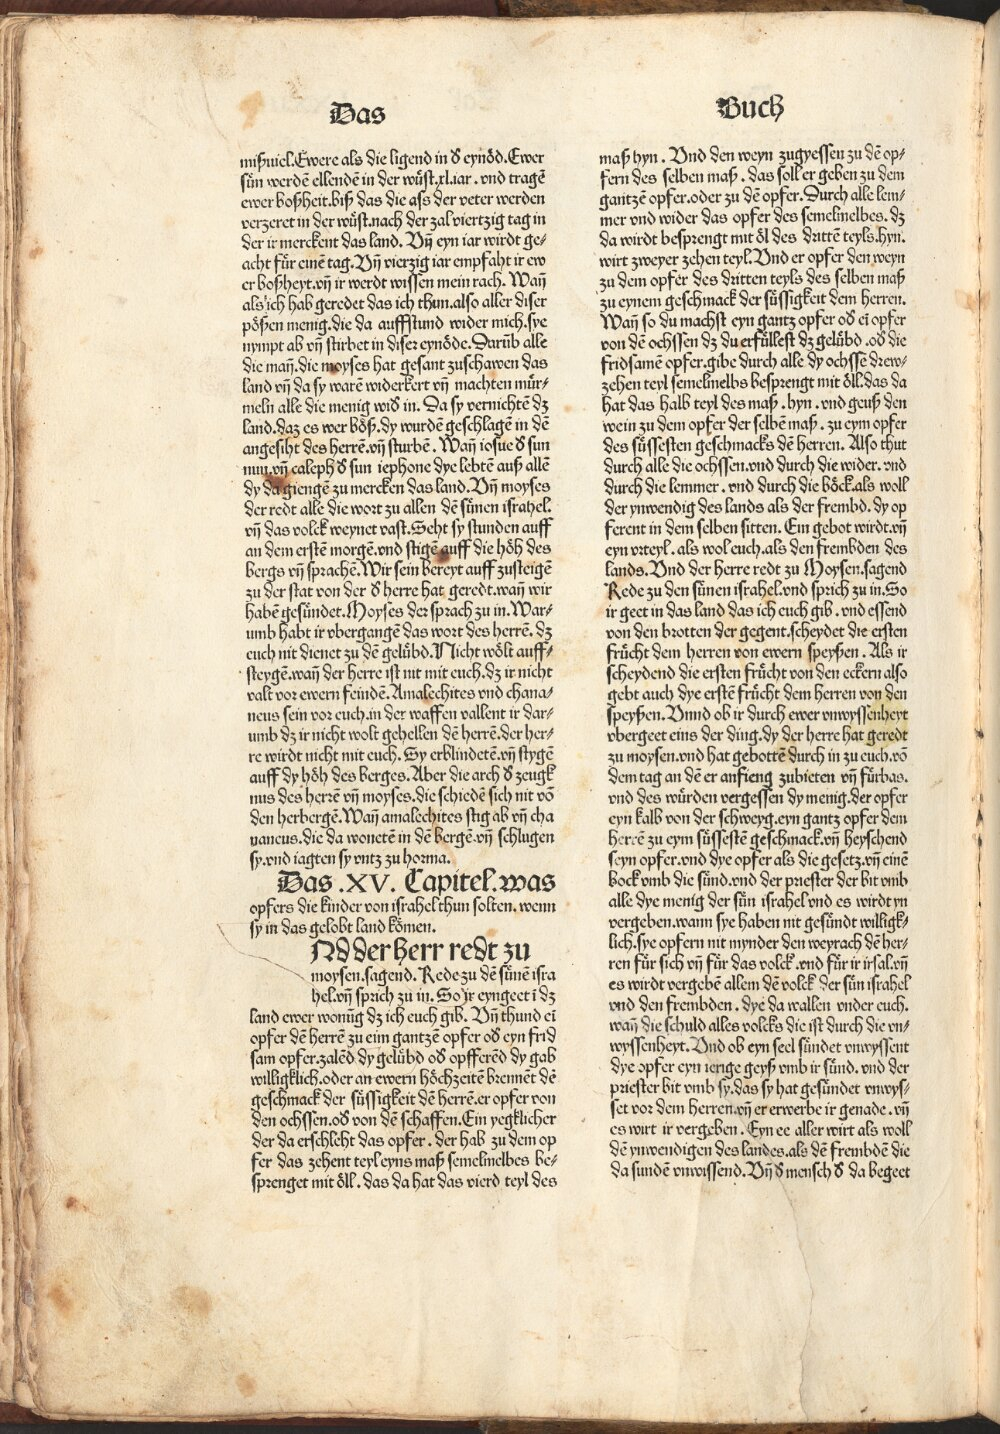 Das
Buch
mißuiel. Ewere als die ligend in d̕ eynöd. Ewer
sün werdē ellendē in der wüst. xl. iar. vnd tragē
ewer boßheit. biß das die ass der veter werden
verzeret in der wüst. nach der zal viertzig tag in
der ir merckent das land. Vn̄ eyn iar wirdt ge-
acht für einē tag. Vn̄ vierzig iar empfaht ir ew
er boßheyt. vn̄ ir werdt wissen mein rach. Wan̄
als ich hab geredet das ich thun. also aller diser
pößen menig. die da auffstund wider mich. sye
nympt ab vn̄ stirbet in diser eynöde. Darūb alle
die man̄. die moyses hat gesant zuschawen das
land vn̄ da sy warē widerkert vn̄ machten mür-
meln alle die menig wid̕ in. Da sy vernichtē dz
land. daz es wer böß. dy wurdē geschlagē in dē
angesiht des herrē. vn̄ sturbē. Wan̄ iosue d̕ sun
nun. vn̄ caleph d̕ sun iephone dye lebtē auß allē
dy da giengē zu mercken das land. Vn̄ moyses
der redt alle die wort zu allen dē sünen israhel.
vn̄ das volck weynet vast. Seht sy stunden auff
an dem erstē morgē. vnd stigē auff die höh des
bergs vn̄ sprachē. Wir sein bereyt auff zusteigē
zu der stat von der d̕ herre hat geredt. wan̄ wir
habē gesündet. Moyses der sprach zu in. War-
umb habt ir vbergangē das wort des herrē. dz
euch nit dienet zu dē gelübd. Nicht wölt auff-
steygē. wan̄ der herre ist nit mit euch. dz ir nicht
valt vor ewern feindē. Amalechites vnd chana-
neus sein vor euch. in der waffen vallent ir dar-
umb dz ir nicht wolt gehellen dē herrē. der her-
re wirdt nicht mit euch. Sy erblindetē. vn̄ stygē
auff dy höh des berges. Aber die arch d̕ zeugk
nus des herrē vn̄ moyses. die schiedē sich nit vō
den herbergē. Wan̄ amalechites stig ab vn̄ cha
naneus. die da wonetē in dē bergē. vn̄ schlugen
sy. vnd iagten sy vntz zu horma.
Das .XV. Capitel. was
opfers die kinder von israhel thun solten. wenn
sy in das gelobt land kömen.
ND der herr redt zu
moysen. sagend. Rede zu dē sünē isra
hel. vn̄ sprich zu in. So ir eyngeet ī dz
land ewer wonūg dz ich euch gib. Vn̄ thund ei
opfer dē herrē zu eim gantzē opfer od̕ eyn frid
sam opfer. zalēd dy gelübd od̕ opfferēd dy gab
willigklich. oder an ewern höchzeitē brennēt dē
geschmack der süssigkeit dē herrē. er opfer von
den ochssen. od̕ von dē schaffen. Ein yegklicher
der da erschlecht das opfer. der hab zu dem op
fer das zehent teyl eyns maß semelmelbes be-
sprenget mit öll. das da hat das vierd teyl des
maß hyn. Vnd den weyn zugyessen zu dē op-
fern des selben maß. das soll er geben zu dem
gantzē opfer. oder zu dē opfer. Durch alle lem-
mer vnd wider das opfer des semelmelbes. dz
da wirdt besprengt mit öl des drittē teyls. hyn.
wirt zweyer zehen teyl. Vnd er opfer den weyn
zu dem opfer des dritten teyls des selben maß
zu eynem geschmack der süssigkeit dem herren.
Wan̄ so du machst eyn gantz opfer od̕ ei opfer
von dē ochssen dz du erfüllest dz gelübd. od̕ die
fridsamē opfer. gibe durch alle dy ochssē drew-
zehen teyl semelmelbs besprengt mit öll. das da
hat das halb teyl des maß. hyn. vnd geuß den
wein zu dem opfer der selbē maß. zu eym opfer
des süssesten geschmacks dē herren. Also thut
durch alle die ochssen. vnd durch die wider. vnd
durch die lemmer. vnd durch die böck. als woll
der ynwendig des lands als der frembd. dy op
ferent in dem selben sitten. Ein gebot wirdt. vn̄
eyn vrteyl. als wol euch. als den frembden des
lands. Vnd der herre redt zu Moysen. sagend
Rede zu den sünen israhel. vnd sprich zu in. So
ir geet in das land das ich euch gib. vnd essend
von den brotten der gegent. scheydet die ersten
frücht dem herren von ewern speyßen. Als ir
scheydend die ersten frücht von den eckern also
gebt auch dye erstē frücht dem herren von den
speyßen. Vnnd ob ir durch ewer vnwyssenheyt
vbergeet eins der ding. dy der herre hat geredt
zu moysen. vnd hat gebottē durch in zu euch. vō
dem tag an dē er anfieng zubieten vn̄ fürbas.
vnd des würden vergessen dy menig. der opfer
eyn kalb von der schweyg. eyn gantz opfer dem
herrē zu eym süssestē geschmack. vn̄ heyschend
seyn opfer. vnd dye opfer als die gesetz. vn̄ einē
bock vmb die sünd. vnd der priester der bit vmb
alle dye menig der sün israhel vnd es wirdt yn
vergeben. wann sye haben nit gesündt willigk-
lich. sye opfern nit mynder den weyrach dē her-
ren für sich vn̄ für das volck. vnd für ir irsal. vn̄
es wirdt vergebē allem dē volck der sün israhel
vnd den frembden. dye da wallen vnder euch.
wan̄ die schuld alles volcks die ist durch die vn-
wyssenheyt. Vnd ob eyn seel sündet vnwyssent
dye opfer eyn ierige geyß vmb ir sünd. vnd der
priester bit vmb sy. das sy hat gesündet vnwys-
set vor dem herren. vn̄ er erwerbe ir genade. vn̄
es wirt ir vergeben. Eyn ee aller wirt als woll
dē ynwendigen des landes. als dē frembdē die
da sündē vnwissend. Vn̄ d̕ mensch d̕ da begeet